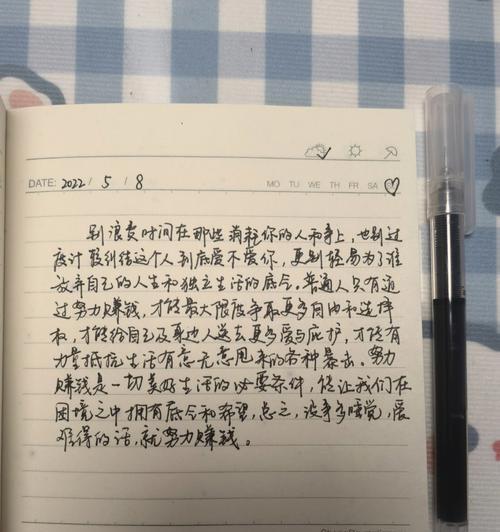 DATE: 2022 / 5 / 8
MO TU WE TH FR SA
别浪费时间在那些消耗你的人和事上,也别过
度计较纠结这个人到底爱不爱你,更别轻易为了谁
放弃自己的人生和独立生活的底气。普通人只有通
过努力赚钱,才能最大限度争取更多自由和选择
权,才能给自己及身边人送去更多爱与庇护,才能有
力量抵抗生活有意无意甩来的各种暴击。努力
赚钱是一切美好生活的必要条件,能让我们在
困境之中拥有底气和希望,总之,没事多睡觉,爱
难得的话,就努力赚钱。